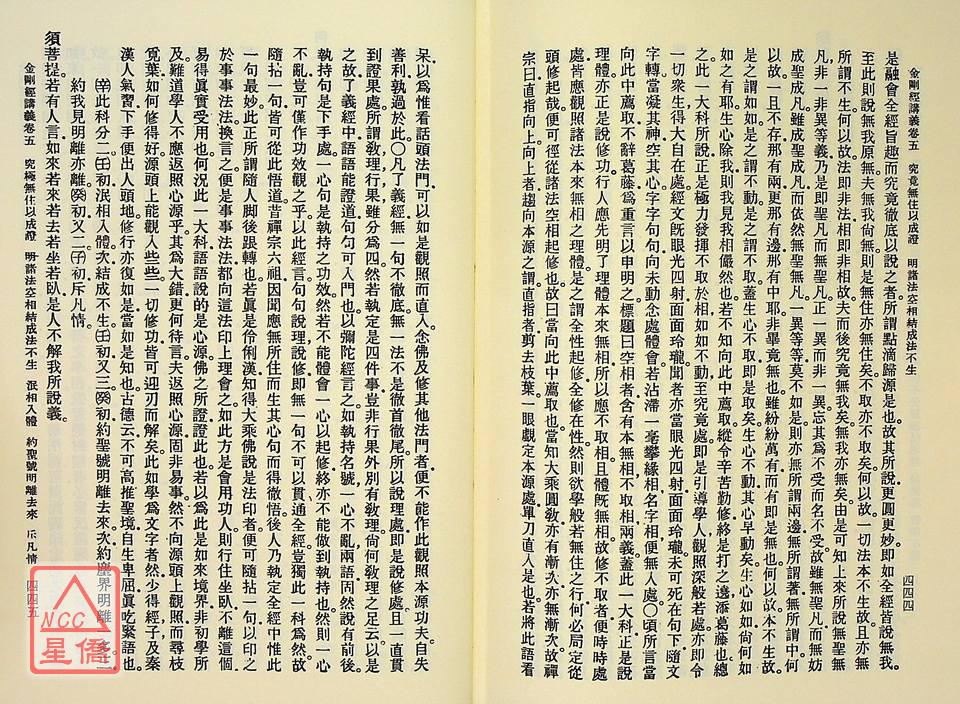 金剛經講義卷五　究竟無住以成證　明諸法空相結成法不生　四四四
是融會全經旨趣而究竟徹底以說之者所謂點滴歸源是也故其所說更圓更妙即如全經皆說無我。
至此則說無我原無夫無我尚無則是無住亦無住矣不取亦不取矣何以故一切法本不生故且亦無
所謂不生何以故法即非法相即非相故夫而後究竟無我矣無我亦無矣由是可知上來所說無聖無
凡非一非異等義乃是即聖凡而無聖凡正一異而非一異忘其為不受而名不受故雖無聖凡而無妨
成聖成凡雖成聖成凡而依然無聖無凡一異等等莫不如是則亦無所謂兩邊無所謂著無所謂中何
以故一且不存那有兩更那有邊那有中耶非畢竟無也雖紛紛萬有而有即是無也何以故本不生故
是之謂如如是之謂不動是之謂不取蓋生心不取即是取矣生心不動其心早動矣生心如如尚何如
如之有耶生心除我則我見我相儼然也若不知向此中薦取縱令辛苦勤修終是打之遶添葛藤也總
之此一大科所說正是極力發揮不取於相如如不動至究竟處即是引導學人觀照深般若處亦即令
一切眾生得大自在處經文既眼光四射面面玲瓏聞者亦當眼光四射面面玲瓏未可死在句下隨文
字轉當凝其神空其心字字句句向未動念處體會若沾滯一毫攀緣相名字相便無入處〇頃所言當
向此中薦取不辭葛藤為重言以申明之標題曰空相者含有本無相不取相兩義蓋此一大科正是說
理體亦正是說修功行人應先明了理體本來無相所以應不取相且體既無相故修不取者便時時處
處皆應觀照諸法本來無相之理體是之謂全性起修全修在性然則欲學般若無住之行何必局定從
頭修起哉便可徑從諸法空相起修也故曰當向此中薦取也當知大乘圓教亦有漸次亦無漸次故禪
宗曰直指向上向上者趨向本源之謂直指者剪去枝葉一眼覷定本源處單刀直入是也若將此語看
呆以為惟看話頭法門可以如是觀照而直入念佛及修其他法門者便不能作此觀照本源功夫自失
善利孰過於此〇凡了義經無一句不徹底無一法不是徹首徹尾所以說理處即是說修處且一直貫
到證果處所謂教理行果雖分為四然若執定是四件事豈非行果外別有教理尚何教理之足云以是
之故了義經中語語能證道句句可入門也以彌陀經言之如執持名號一心不亂兩語固然說有前後。
執持句是下手處一心句是執持之功效然若不能體會一心以起修終亦不能做到執持也然則一心
不亂豈可僅作功效觀之乎以此經言句句說理說修即無一句不可以貫通全經豈獨此一科為然故
隨拈一句皆可從此悟道昔禪宗六祖因聞應無所住而生其心句而得徹悟後人乃執定全經中惟此
一句最妙此正所謂隨人脚後跟轉也若真是伶俐漢知得大乘佛說是法印者便可隨拈一句以印之
於事事法法換言之便是事事法法都向這法印上理會之如此方是會用功人則行住坐臥不離這個
易得真實受用也何況此一大科語語說的是心源佛之所證證此也若以為此是如來境界非初學所
及難道學人不應返照心源乎其為大錯更何待言夫返照心源固非易事然不向源頭上觀照而尋枝
覓葉如何修得好源頭上能觀入些些一切修功皆可迎刃而解矣此如學為文字者然少得經子及秦
漢人氣習下手便出人頭地修行亦復如是當如是知也古德云不可高推聖境自生卑屈真吃緊語也
㊛此科分二㊂初泯相入體次結成不生㊂初又三㊌初約聖號明離去來次約塵界明離
約我見明離亦離㊌初又二㊀初斥凡情。
須菩提若有人言如來若來若去若坐若臥是人不解我所說義。
金剛經講義卷五　究極無住以成證　明諸法空相結成法不生　泯相入體　約聖號明離去來　斥凡情　四四五
NCC
星僑